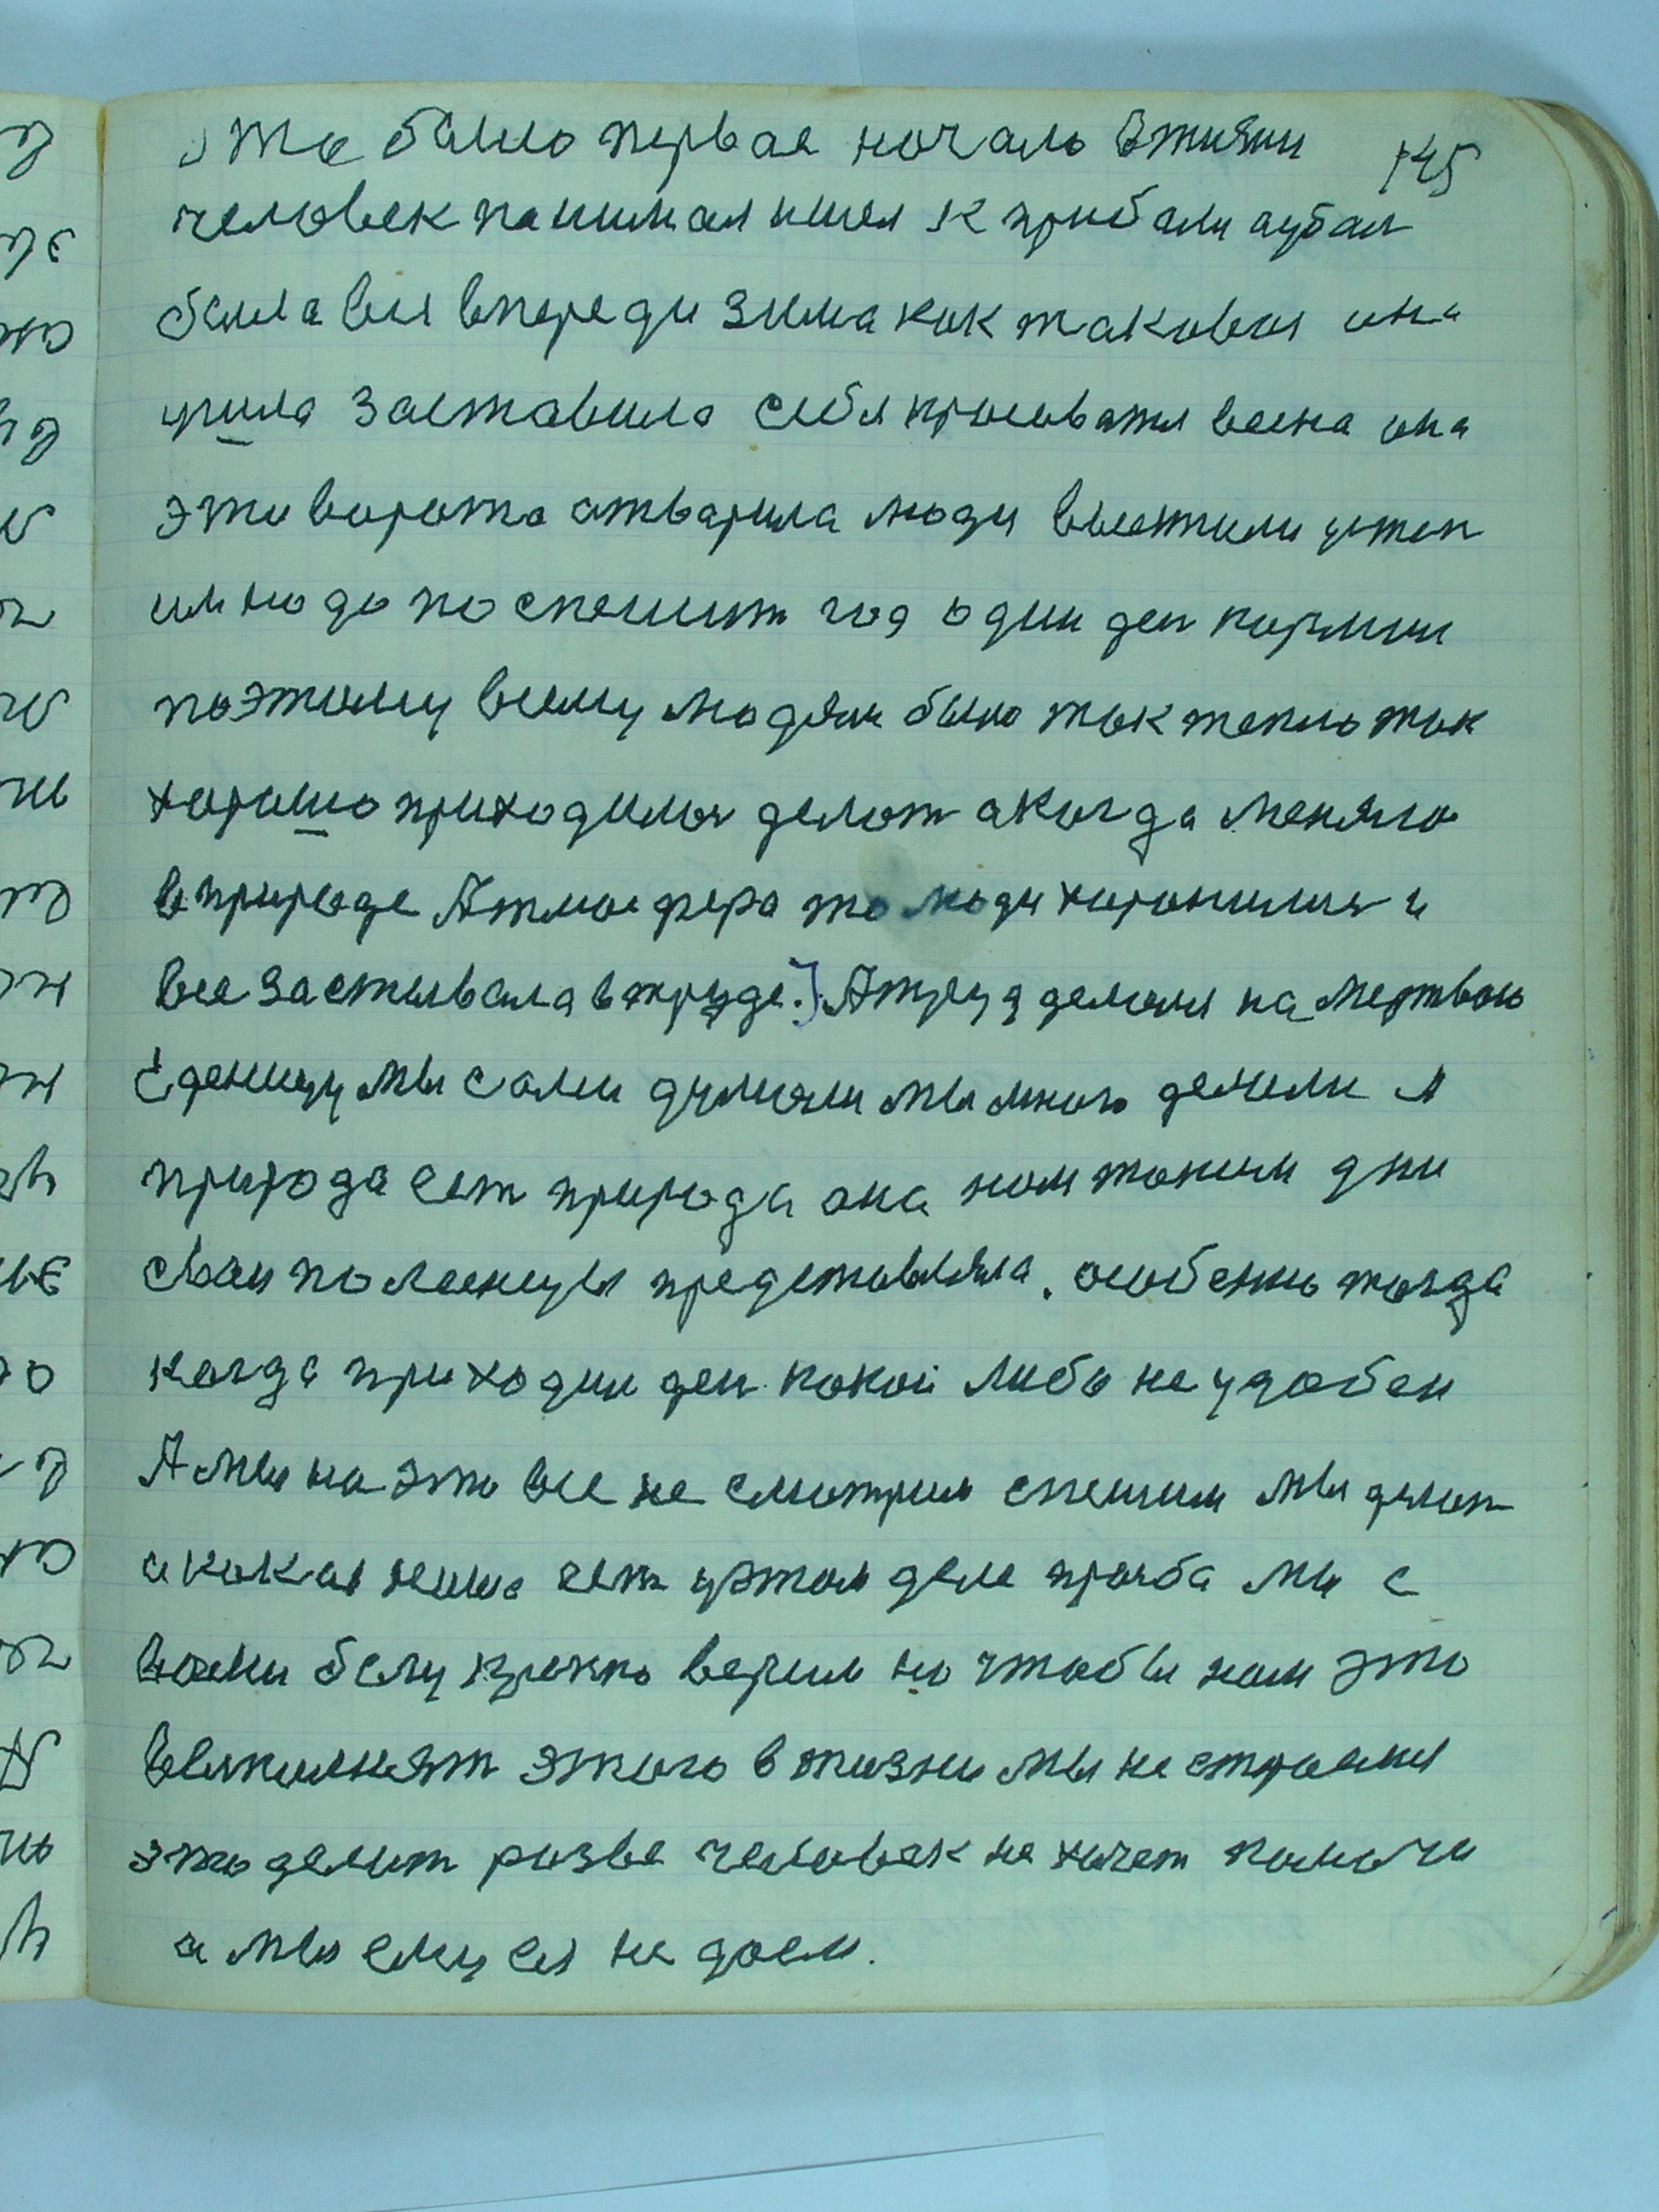 это было первае начало вжизни 145
человек панимал шол к прибали аубал
была вся впереди зима как таковая она
учила заставила себя красоватя весна она
эти варота атварила люди высктили устеп
им надо поспешит год один ден кармии
поэтаму всему людям было так тепло так
харашо приходилос делат а когда менялас
вприроде Атмосфера то люди харанилис и
все застывала в труде.) Атруд делался на мертваю
Еденицу мы сами думали мы много делали А
природа ест природа она нам таким дни
сваи поменцыя представляла. особенно тагда
когда приходил ден какой либо не удобен
А мы на это все не смотрим спешим мы делат
а какая наша ест уэтом деле прозба мы с
вами белу крепко верим но чтобы нам это
выполнят этого в жизни мы не страемся
это делат разве человек не хочет помочи
а мы ему ея не даем.